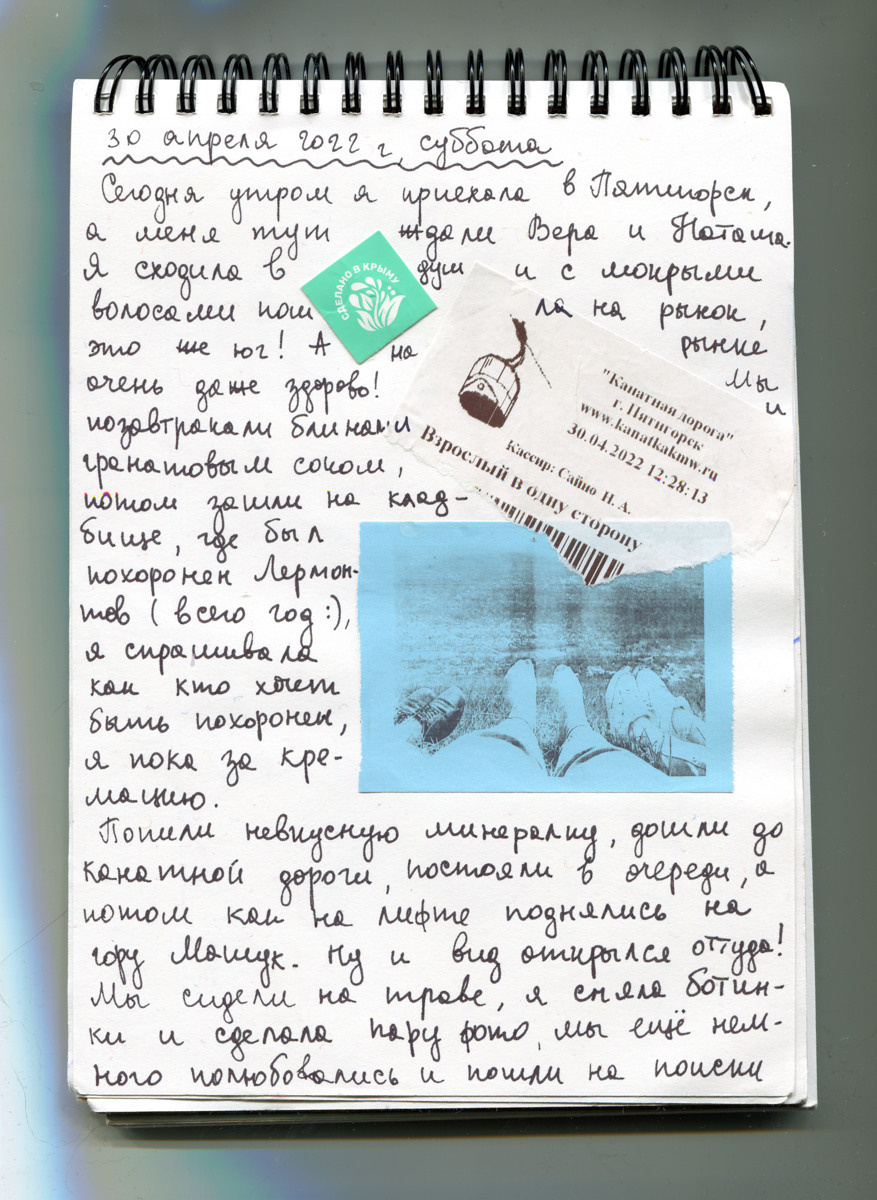 30 апреля 2022 г, суббота
Сегодня утром я приехала в Пятигорск,
а меня тут ждали Вера и Наташа.
Я сходила в душ и с мокрыми
волосами пошла на рынок,
это же юг! А на рынке
очень даже здорово! Мы
позавтракали блинами и
гранатовым соком,
потом зашли на клад-
бище, где был
похоронен Лермон-
тов (всего год :),
я спрашивала
как кто хочет
быть похоронен,
я пока за кре-
мацию.
СДЕЛАНО В КРЫМУ
"Канатная дорога"
г. Пятигорск
www.kanatkakmw.ru
30.04.2022 12:28:13
Кассир: Сайно Н. А.
Взрослый в одну сторону
Попили невкусную минералку, дошли до
канатной дороги, постояли в очереди, а
потом как на лифте поднялись на
гору Машук. Ну и вид открылся оттуда!
Мы сидели на траве, я сняла ботин-
ки и сделала пару фото, мы ещё нем-
ного полюбовались и пошли на поиски